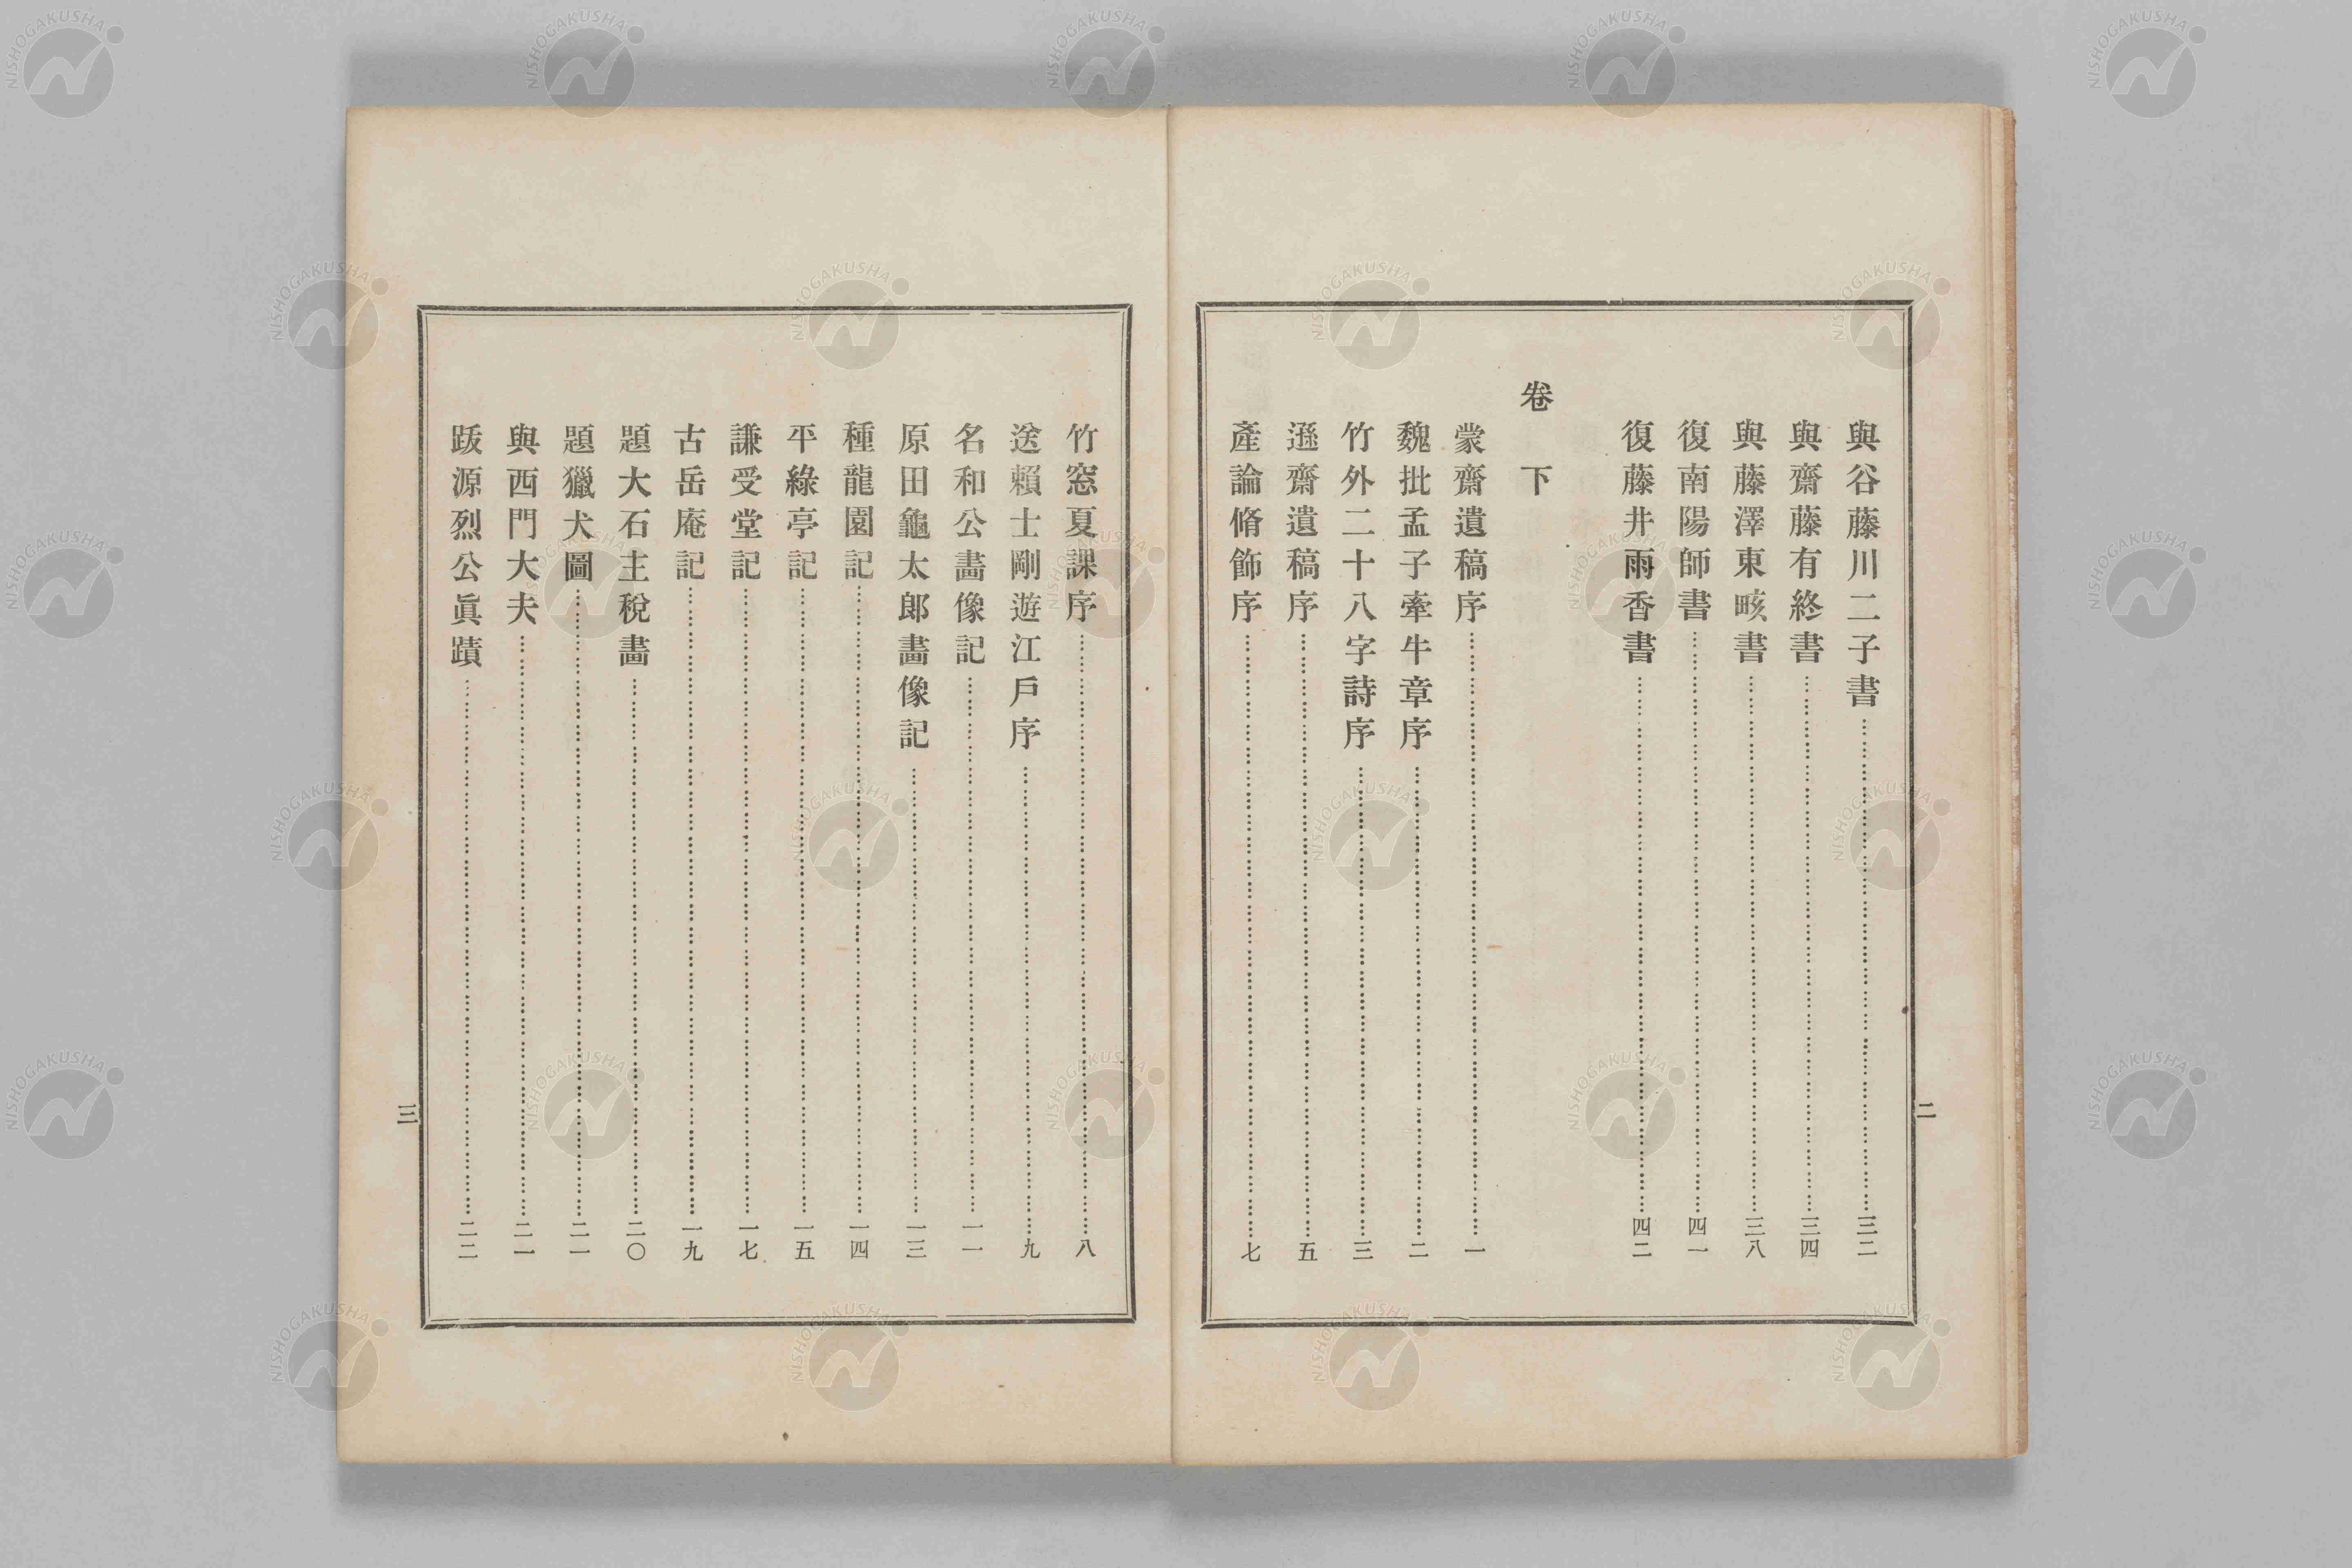 與谷藤川二子書……三二
與齋藤有終書……三四
與藤澤東畡書……三八
復南陽師書……四一
復藤井雨香書……四二
卷下
蒙齋遺稿序……一
魏批孟子牽牛章序……二
竹外二十八字詩序……三
遜齋遺稿序……五
產論脩飾序……七
二
竹窓夏課序……八
送賴士剛遊江戶序……九
名和公畫像記……一一
原田龜太郞畫像記……一三
種龍園記……一四
平綠亭記……一五
謙受堂記……一七
古岳庵記……一九
題大石主稅畫……二〇
題獵犬圖……二一
與西門大夫……二一
跋源烈公眞蹟……二二
三
NISHOGAKUSHA